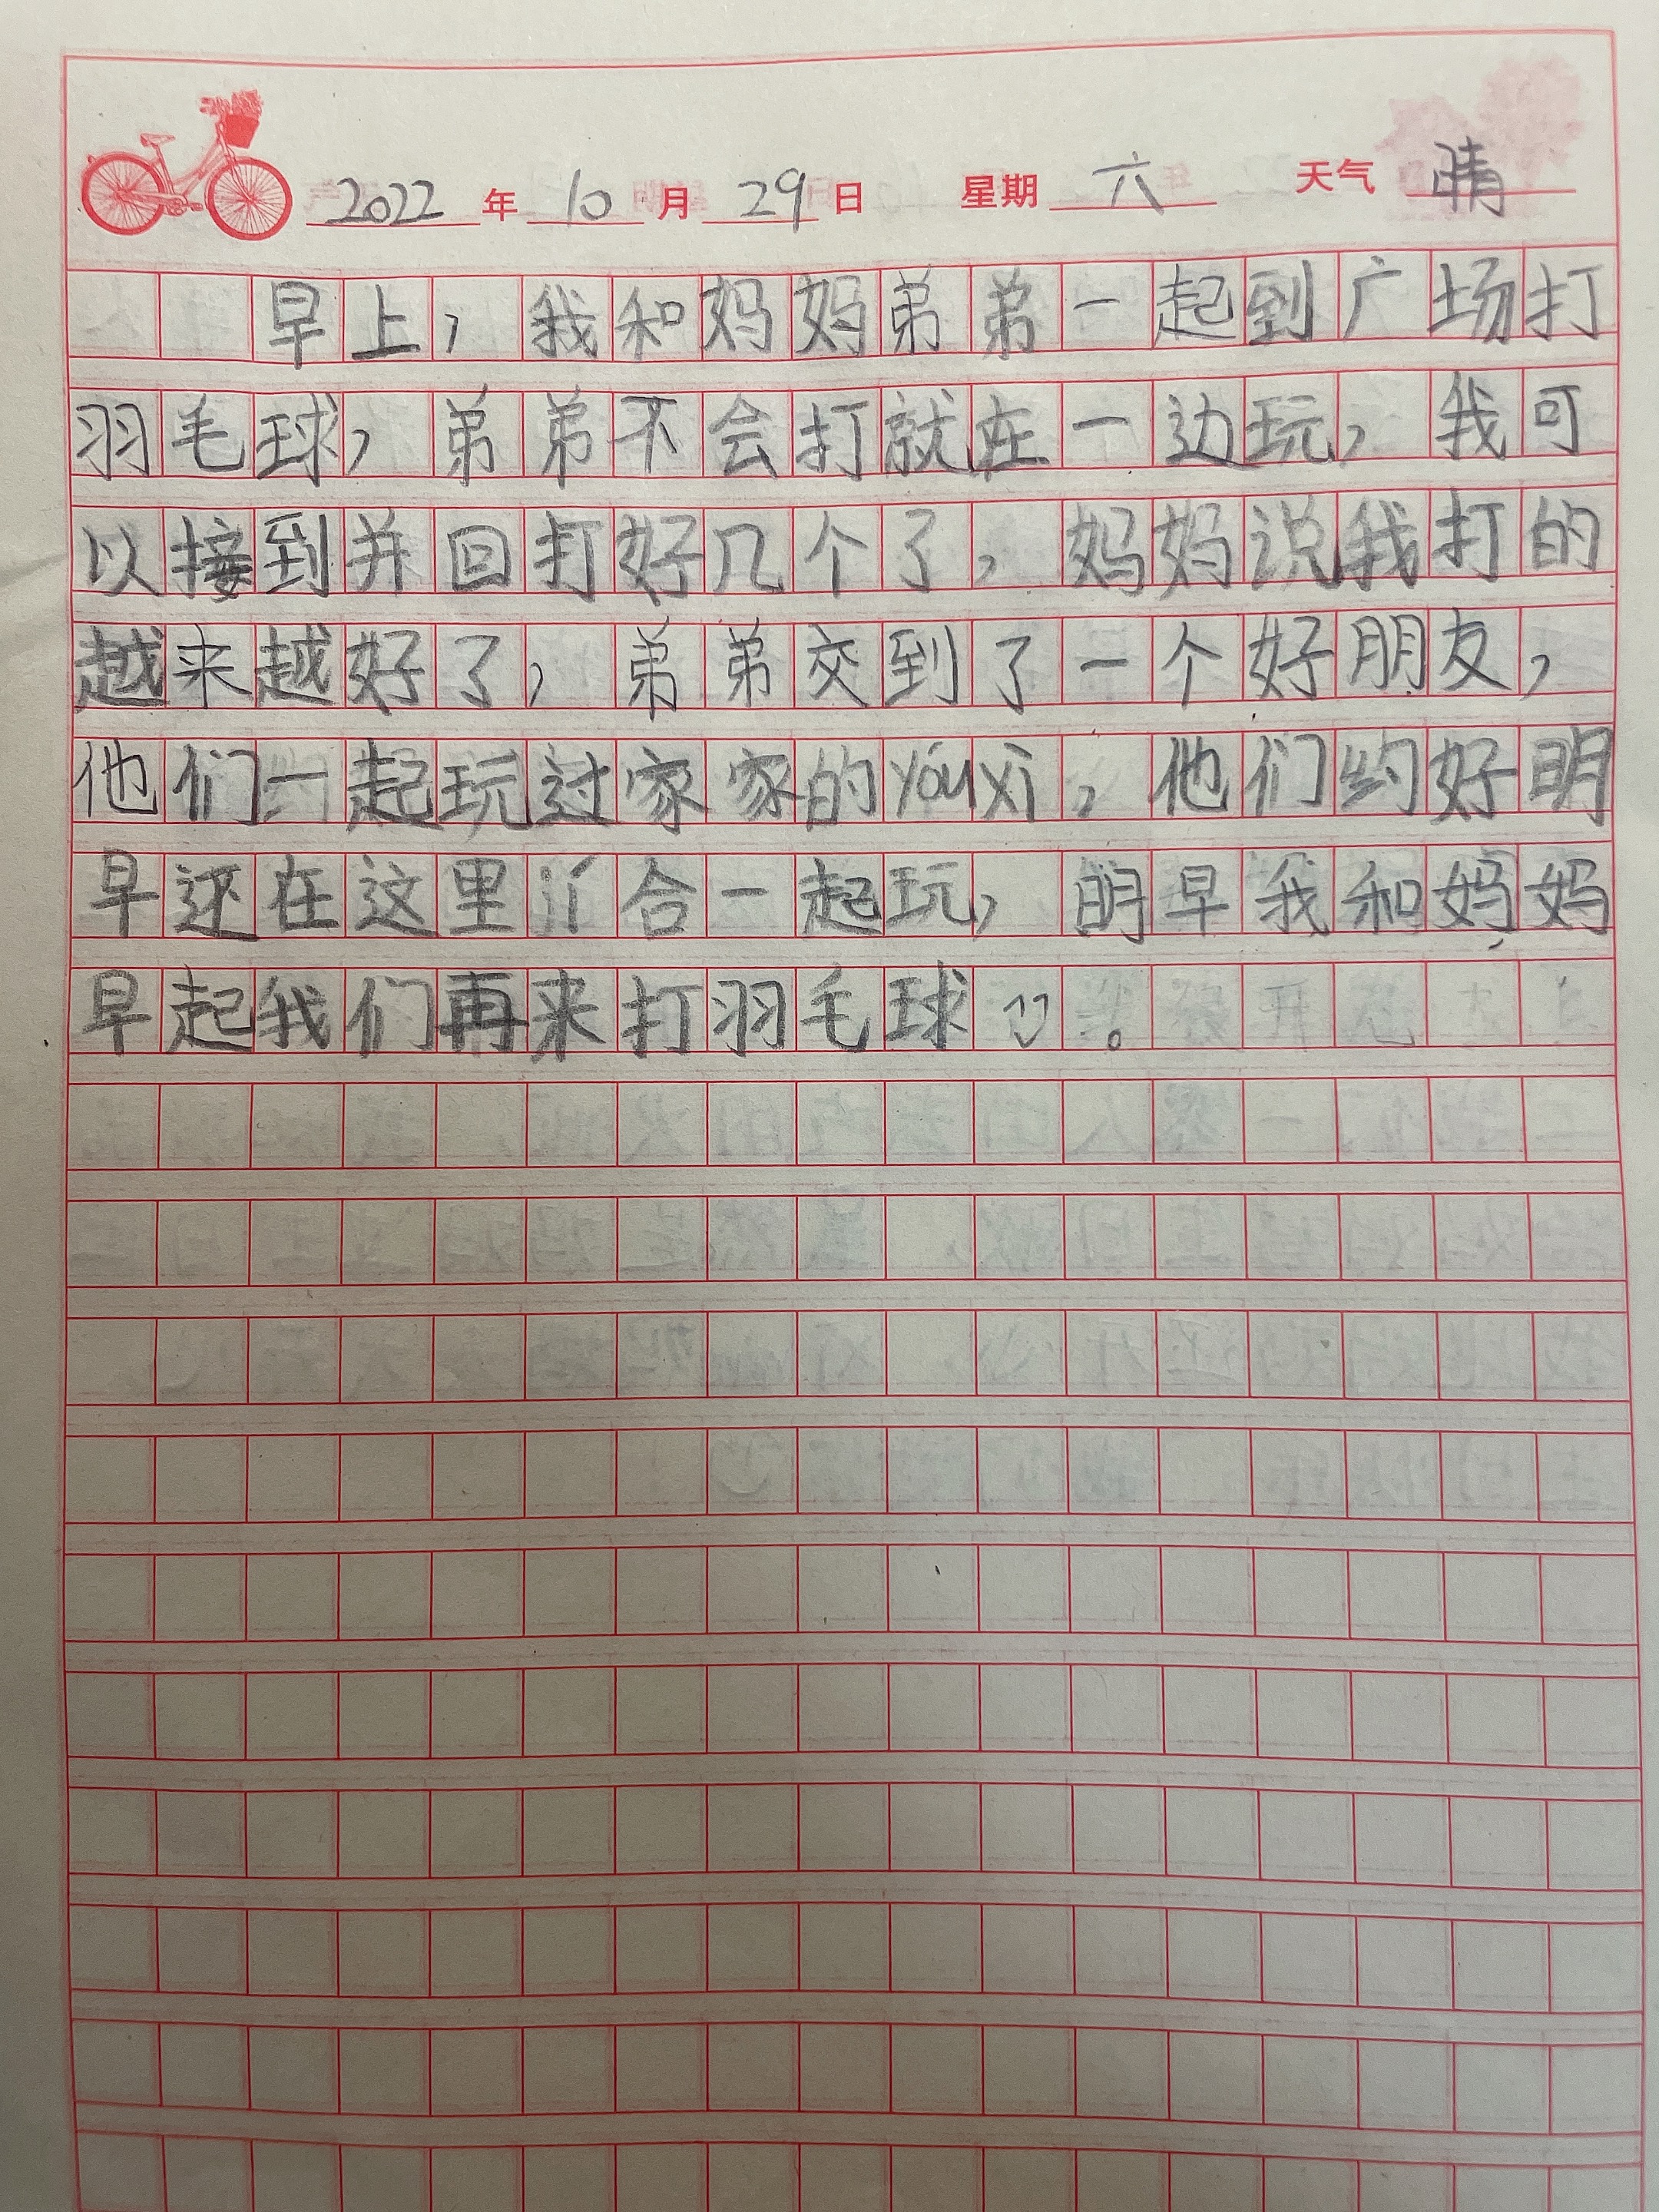 2022年10月29日 星期六 天气晴
早上，我和妈妈弟弟一起到广场打
羽毛球，弟弟不会打就在一边玩，我可
以接到并回打好几个了，妈妈说我打的
越来越好了，弟弟交到了一个好朋友，
他们一起玩过家家的yóuxì，他们约好明
早还在这里合一起玩，明早我和妈妈
早起我们再来打羽毛球。